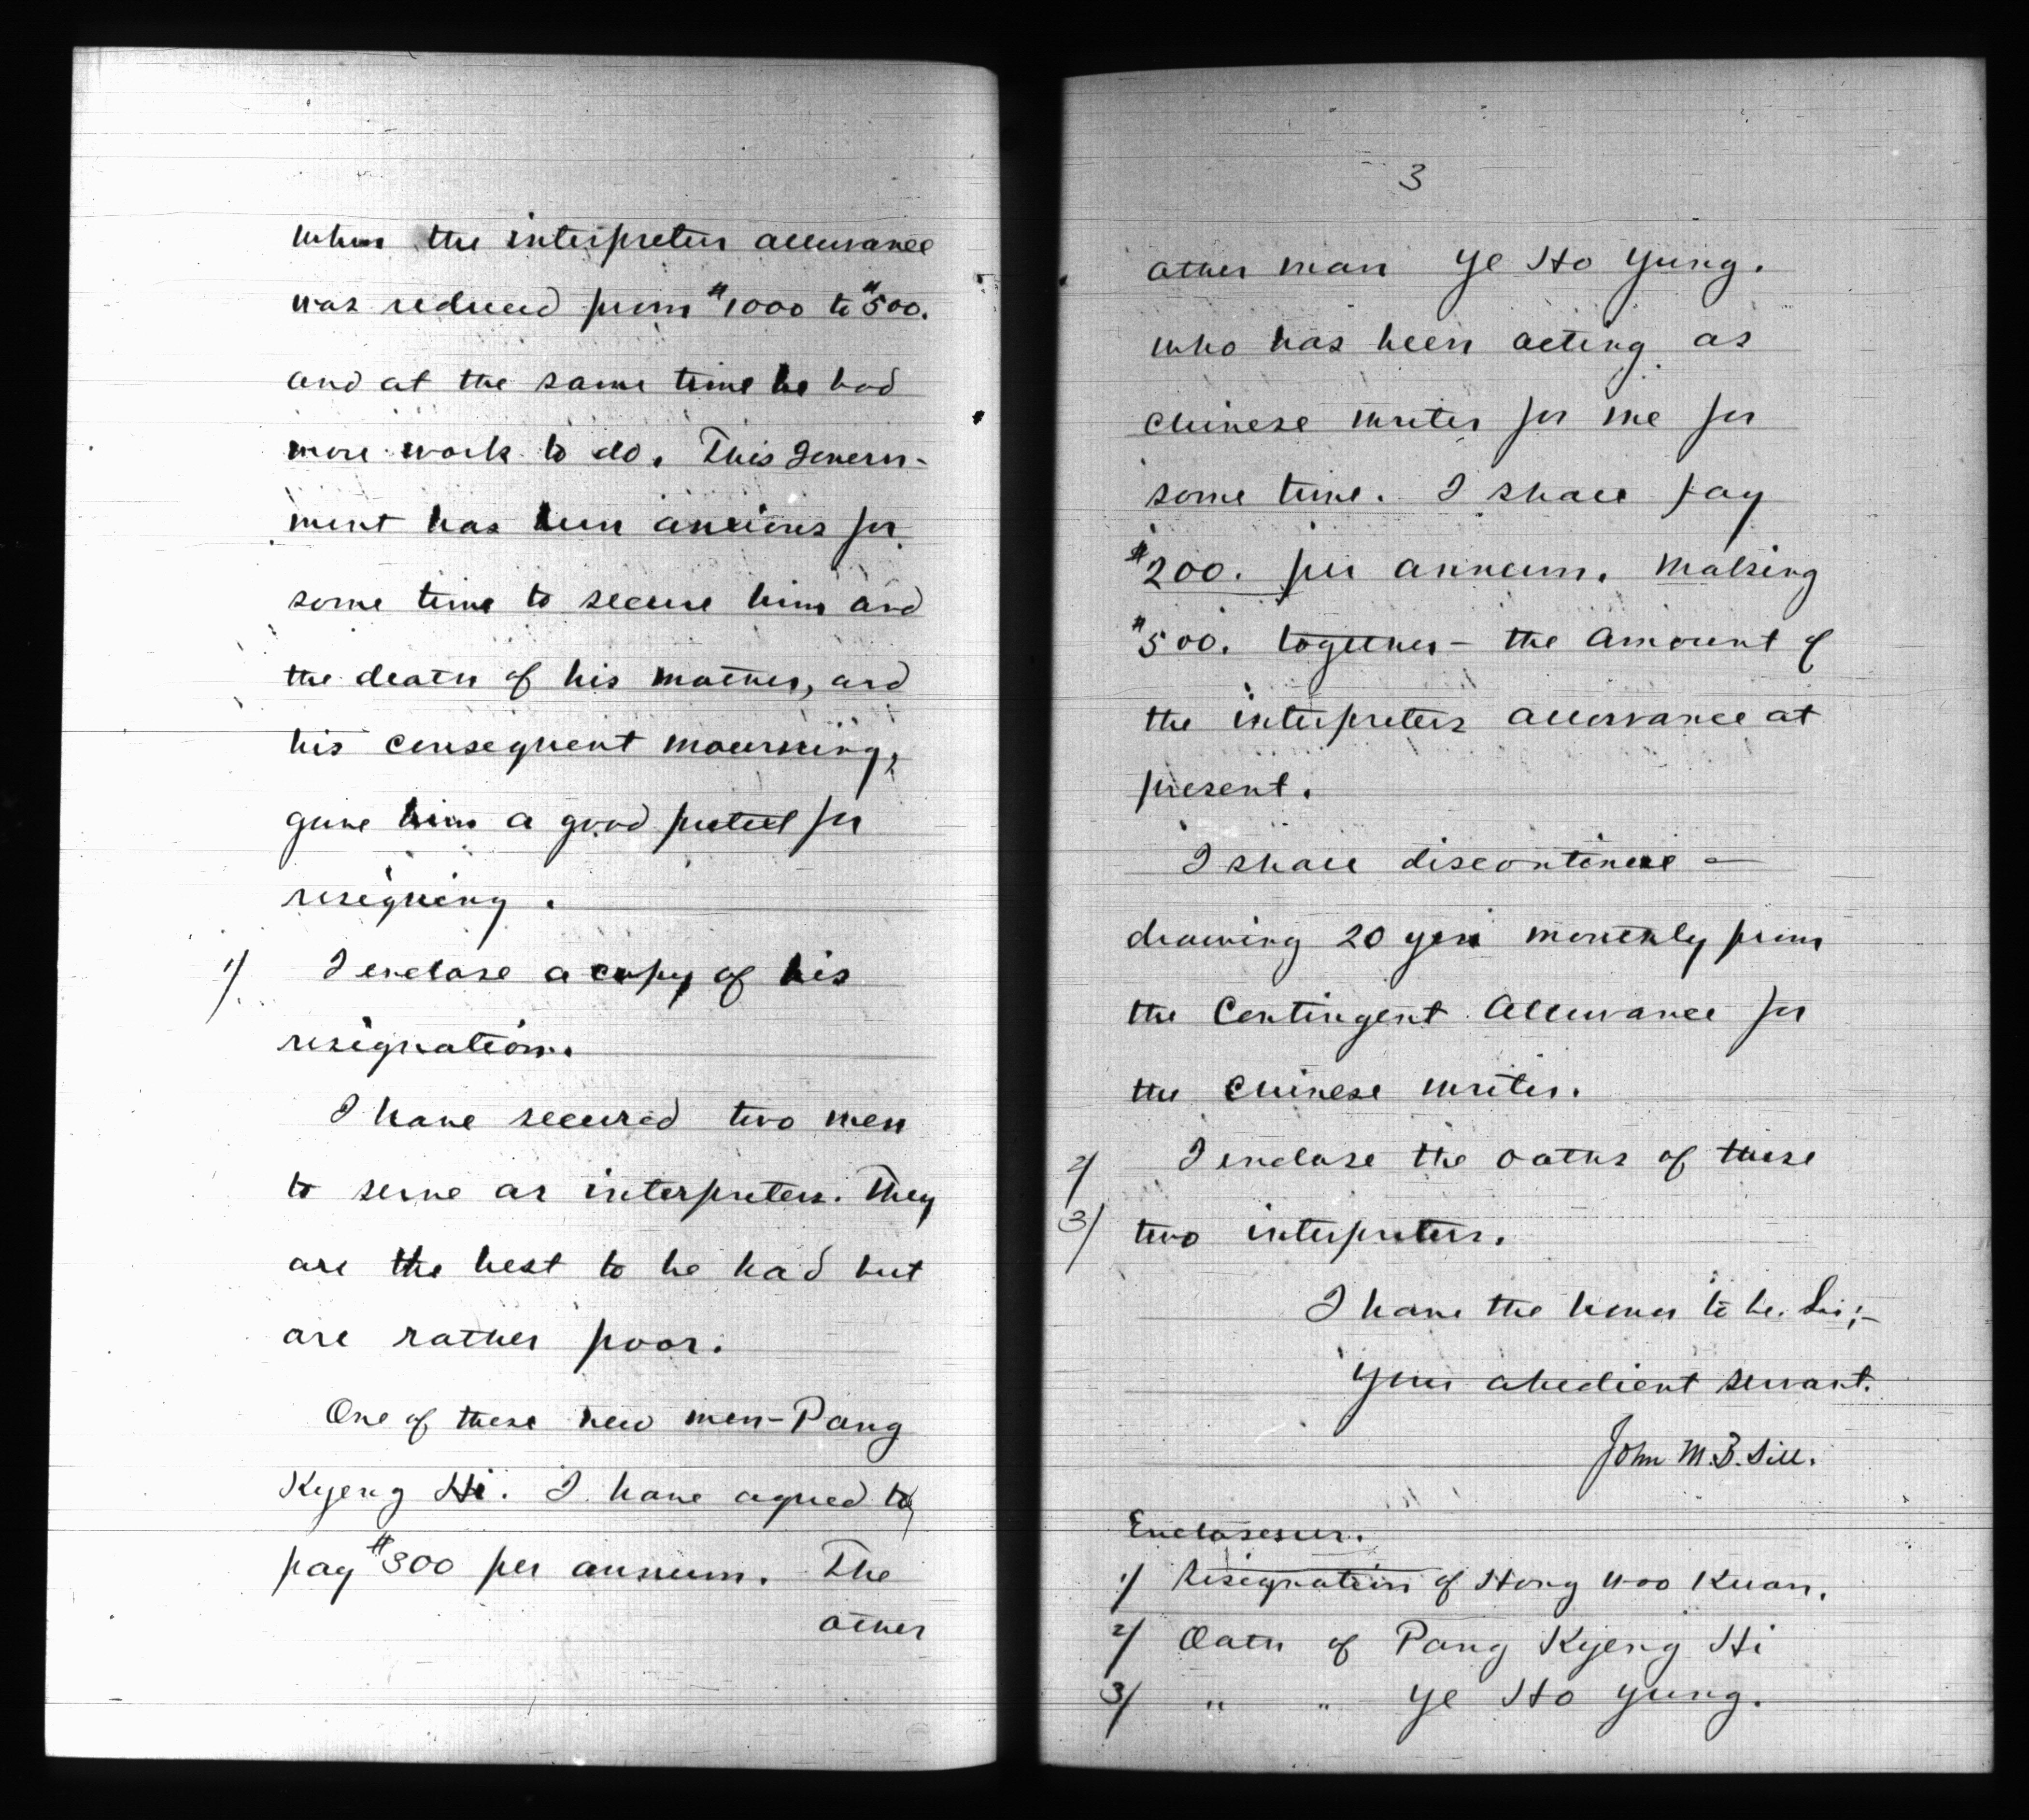 when the interpreters allowance
was reduced from $1000 to $500.
and at the same time he had
more work to do. This Govern-
ment has been anxious for
some time to secure him and
the death of his mother, and
his consequent mourning,
gave him a good pretext for
resigning.
1/ I enclose a copy of his
resignation.
I have secured two men
to serve as interpreters. They
are the best to be had but
are rather poor.
One of these new men - Pang
Kyeng Hi. I have agreed to
pay $300 per annum. The
other
3
other man Ye Ho Yung.
who has been acting as
Chinese writer for me for
some time. I shall pay
$200. per annum. Making
$500. together - the amount of
the interpreters allowance at
present.
I shall discontinue -
drawing 20 yen monthly from
the Contingent Allowance for
the Chinese writer.
2/ I enclose the oaths of these
3/ two interpreters.
I have the honor to be. Sir;-
Your obedient servant.
John M.B. Sill.
Enclosures.
1/ Resignation of Hong Woo Kuan.
2/ Oath of Pang Kyeng Hi
3/ " " Ye Ho Yung.